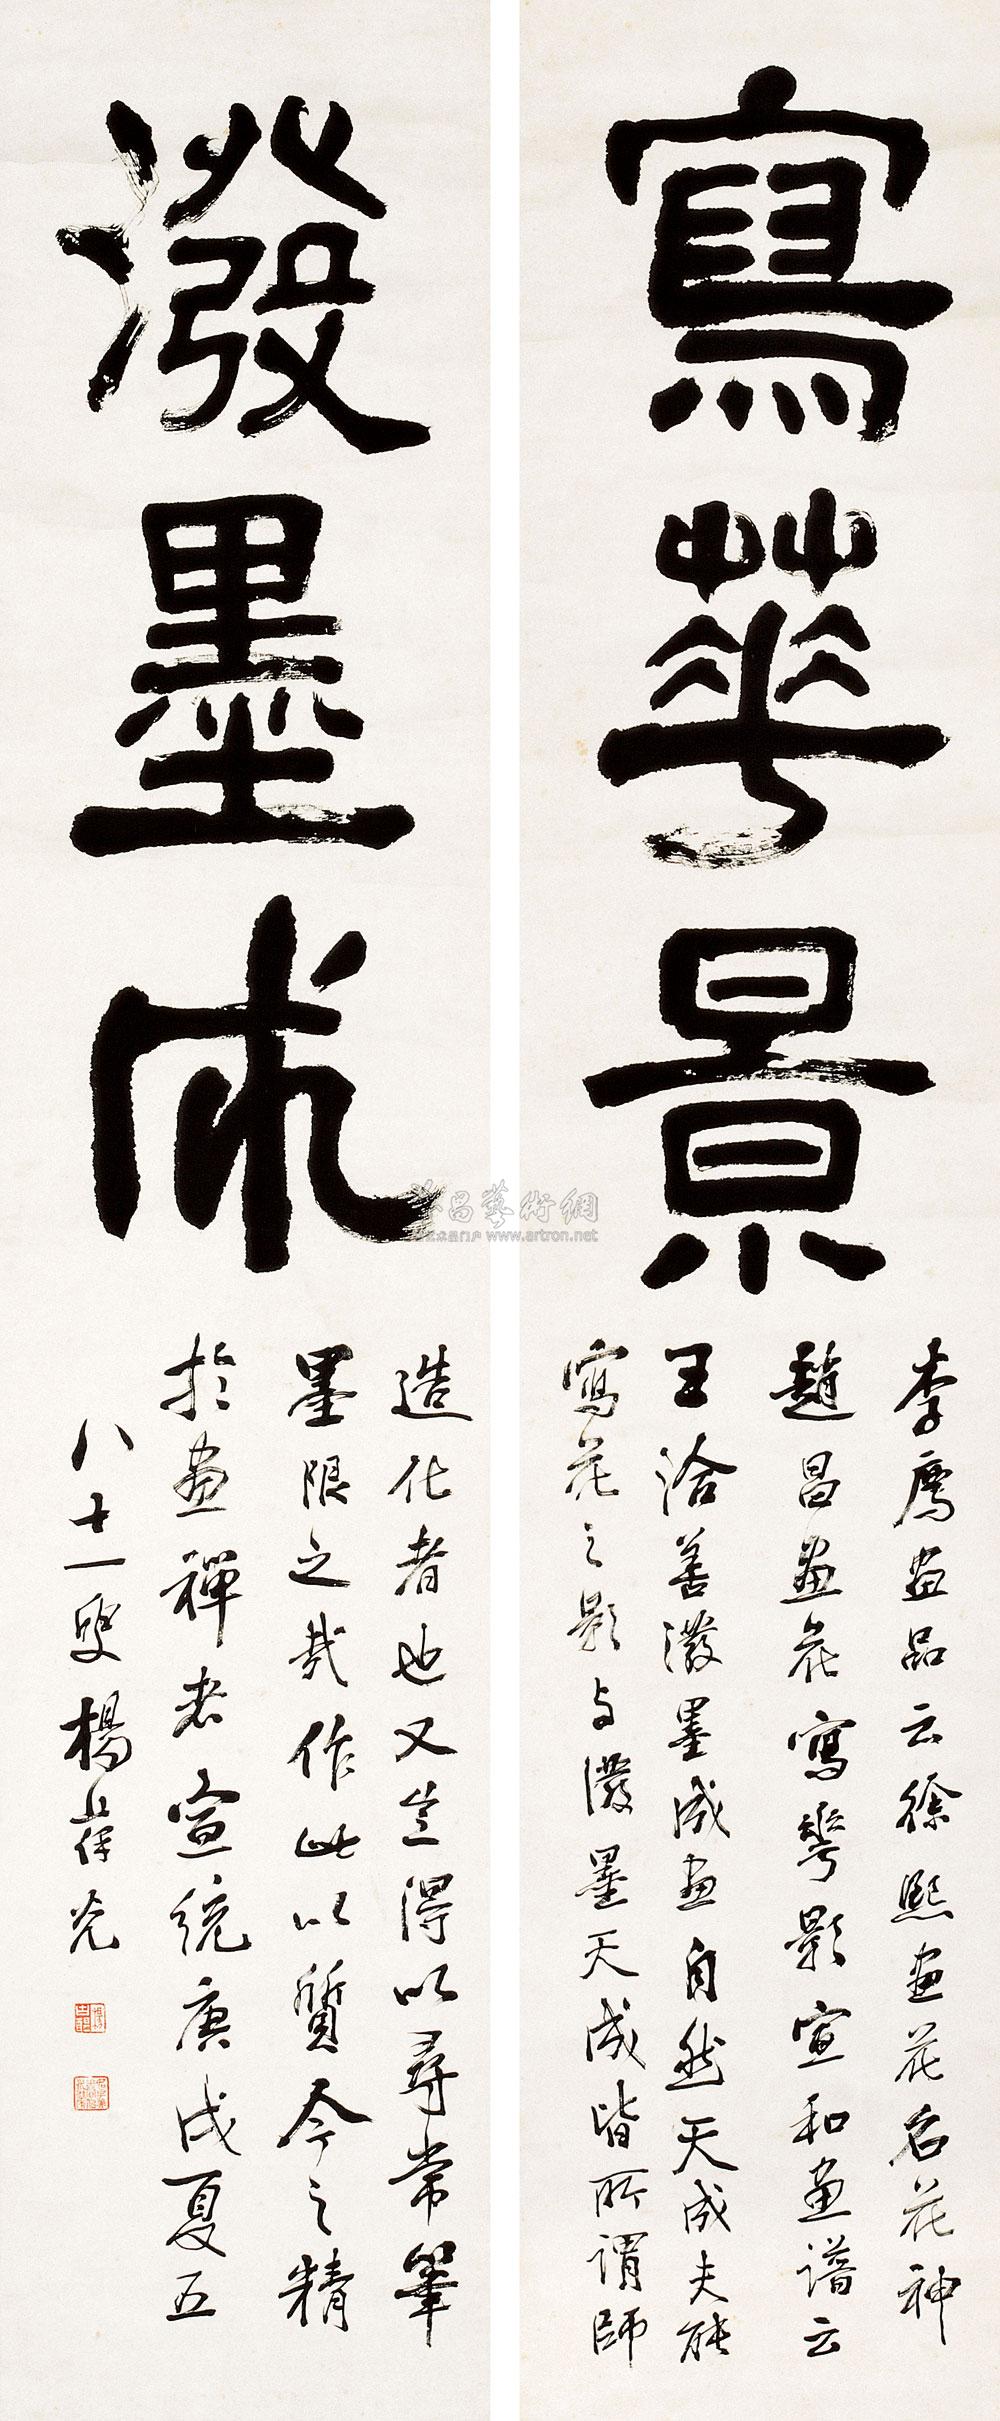 寫華景
李廌畫品云徐熙畫花名花神
趙昌畫花寫花影宣和畫譜云
王洽善潑墨成畫自然天成夫能
寫花之影与潑墨天成皆所謂師
潑墨成
造化者也又豈得以尋常筆
墨限之哉作此以質今之精
於畫禪者宣統庚戌夏五
八十一叟楊葆光
藝術網
www.artron.net